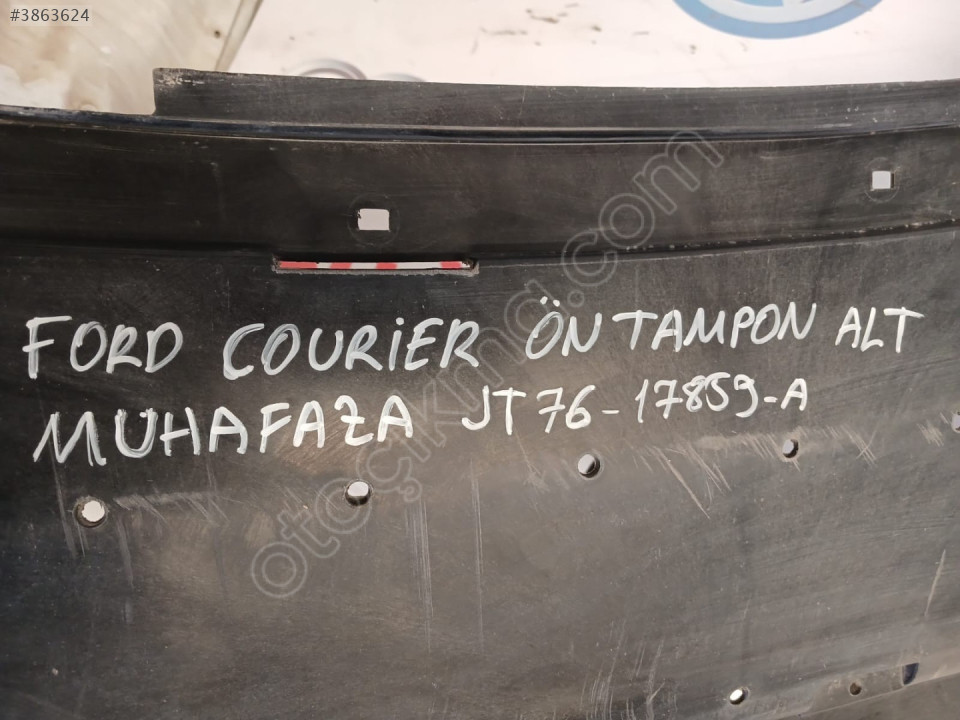 #3863624
FORD COURİER ÖN TAMPON ALT
MUHAFAZA JT76-17859-A
otoçıkma.com